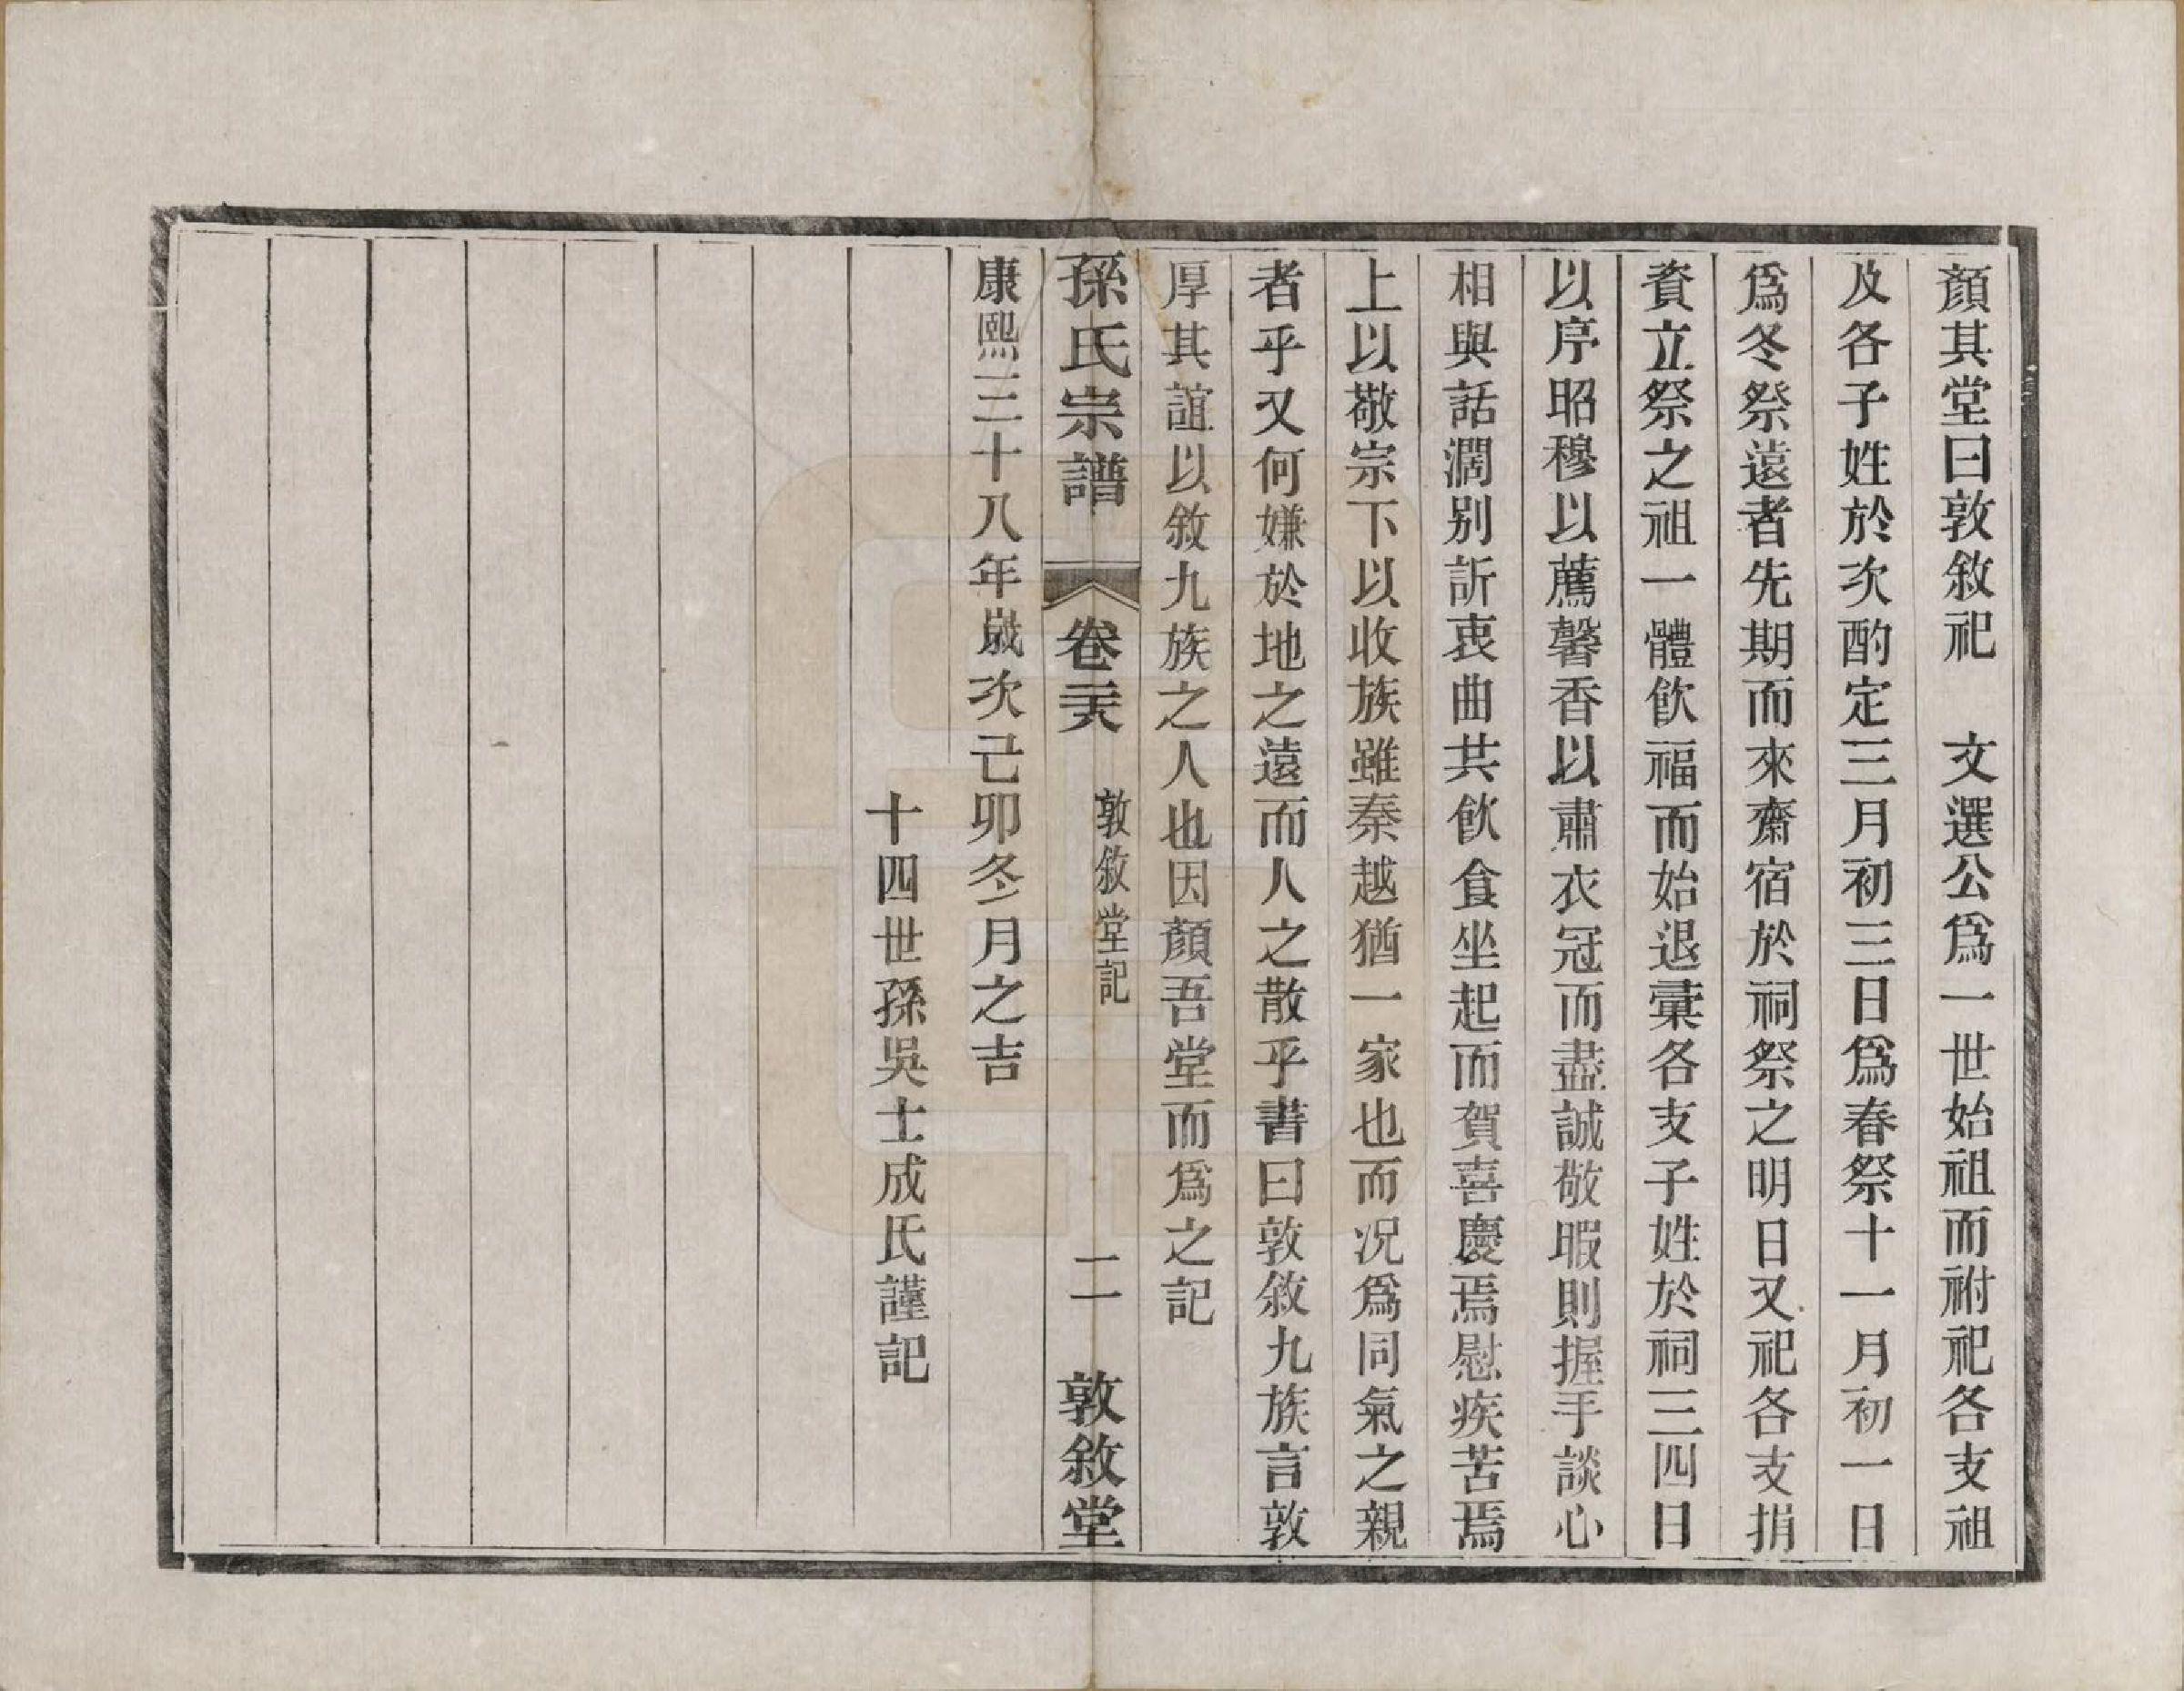 顏其堂曰敦敘祀　文選公爲一世始祖而祔祀各支祖
及各子姓於次酌定三月初三日爲春祭十一月初一日
爲冬祭遠者先期而來齋宿於祠祭之明日又祀各支捐
資立祭之祖一體飲福而始退彙各支子姓於祠三四日
以序昭穆以薦馨香以肅衣冠而盡誠敬暇則握手談心
相與話濶別訢衷曲共飲食坐起而賀喜慶焉慰疾苦焉
上以敬宗下以收族雖秦越猶一家也而况爲同氣之親
者乎又何嫌於地之遠而人之散乎書曰敦敘九族言敦
厚其誼以敘九族之人也因顏吾堂而爲之記
孫氏宗譜　卷二六　敦敘堂記　二　敦敘堂
康熙三十八年歲次己卯冬月之吉
十四世孫吳士成氏謹記